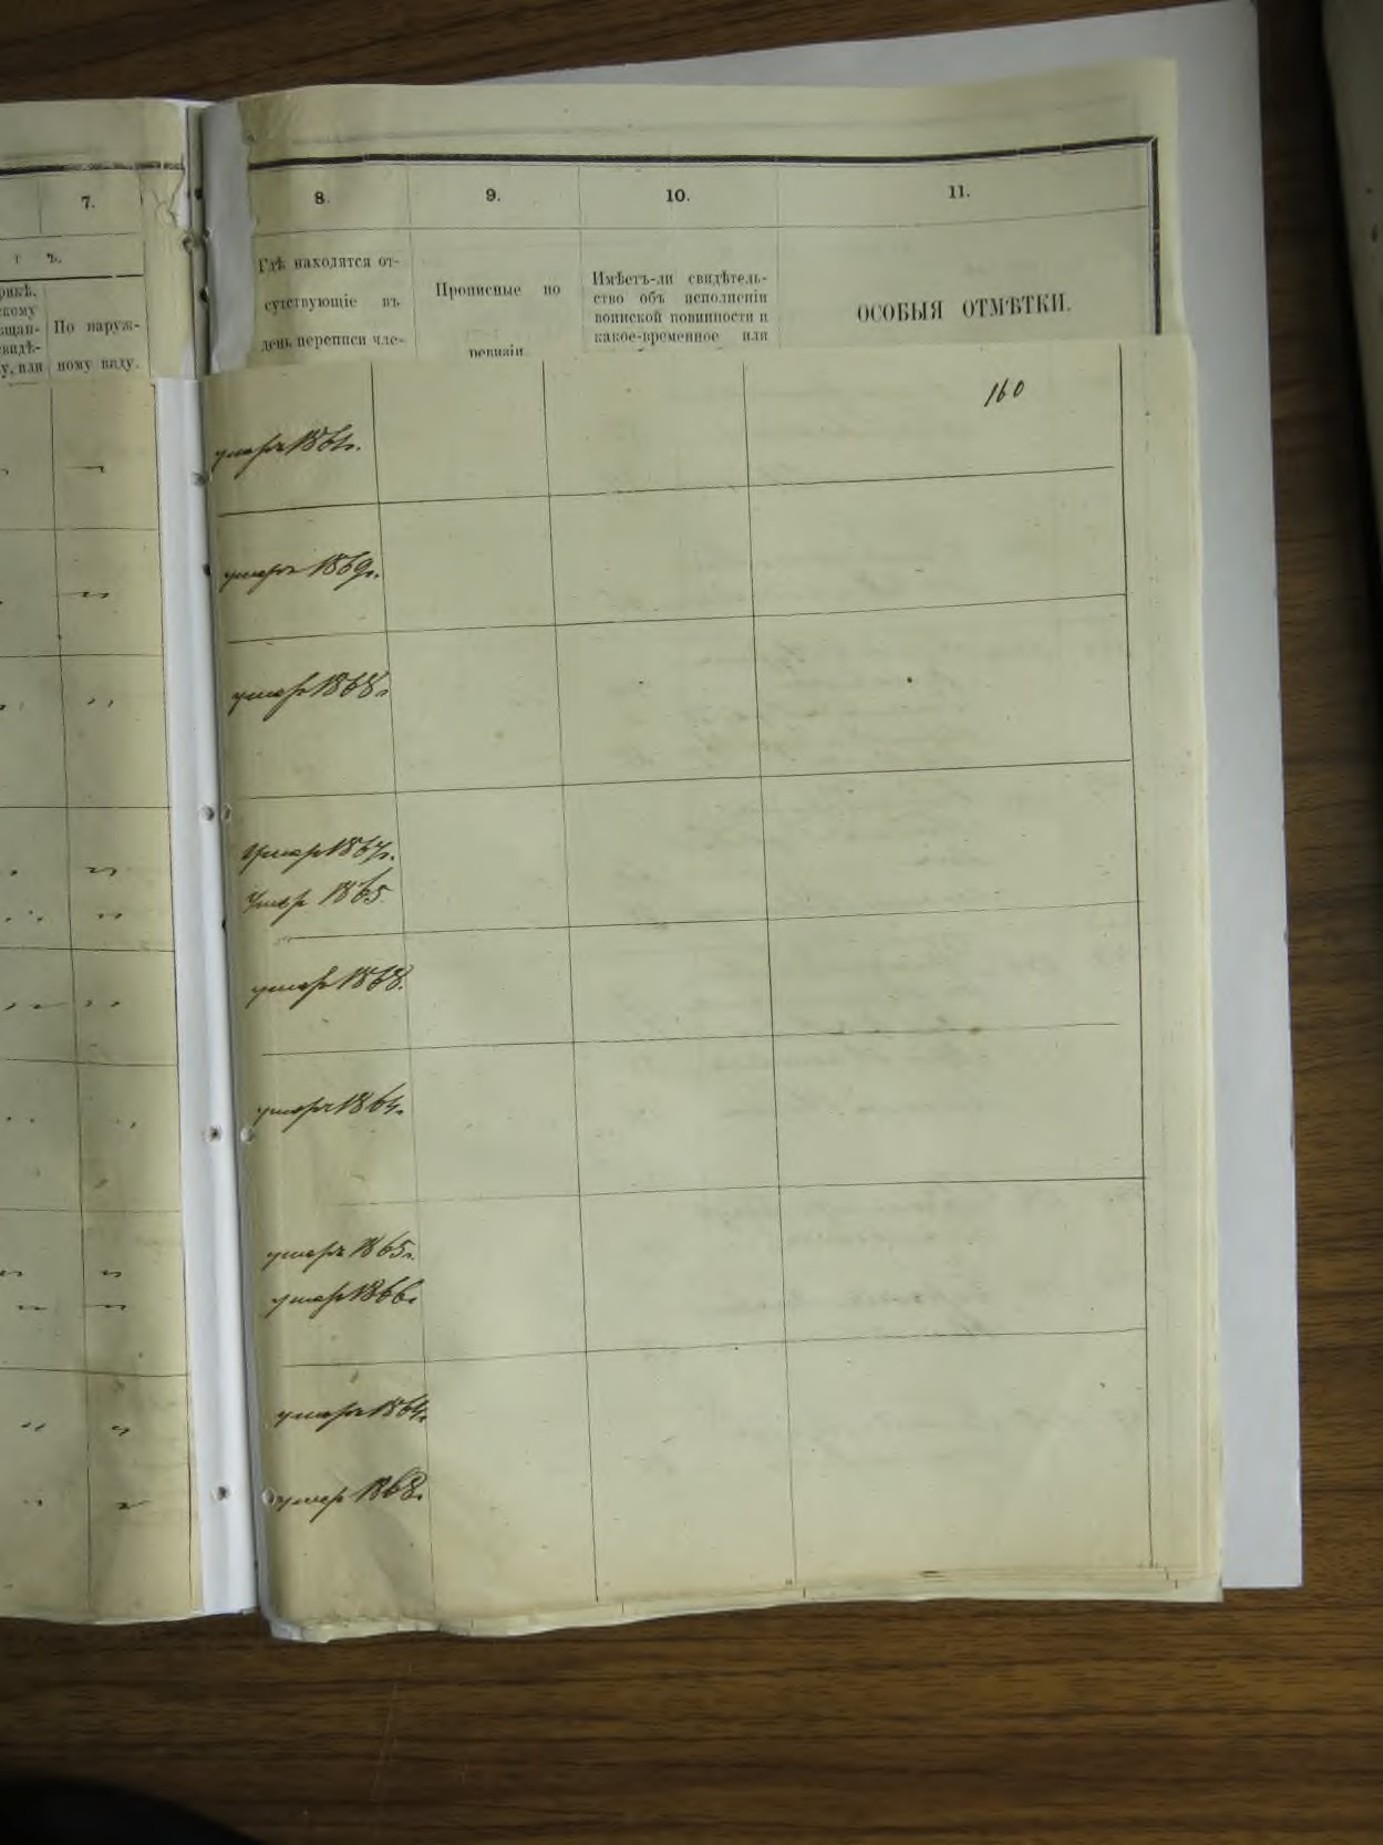 7.
т ъ.
рикѣ,
скому
щан-
свидѣ-
у, или
По наруж-
ному виду.
8.
9.
10.
11.
Гдѣ находятся от-
сутствующіе въ
день переписи чле-
Прописные по
ревизіи
Имѣетъ-ли свидѣтель-
ство объ исполненіи
воинской повинности и
какое-временное или
ОСОБЫЯ ОТМѢТКИ.
160
умеръ
умеръ 1869г.
умеръ 1868г
Умеръ 1867г.
Умеръ 1865
умеръ 1868.
умеръ 1864г.
умеръ 1865г.
умеръ 1866г
умеръ 1864г.
умеръ 1868г.